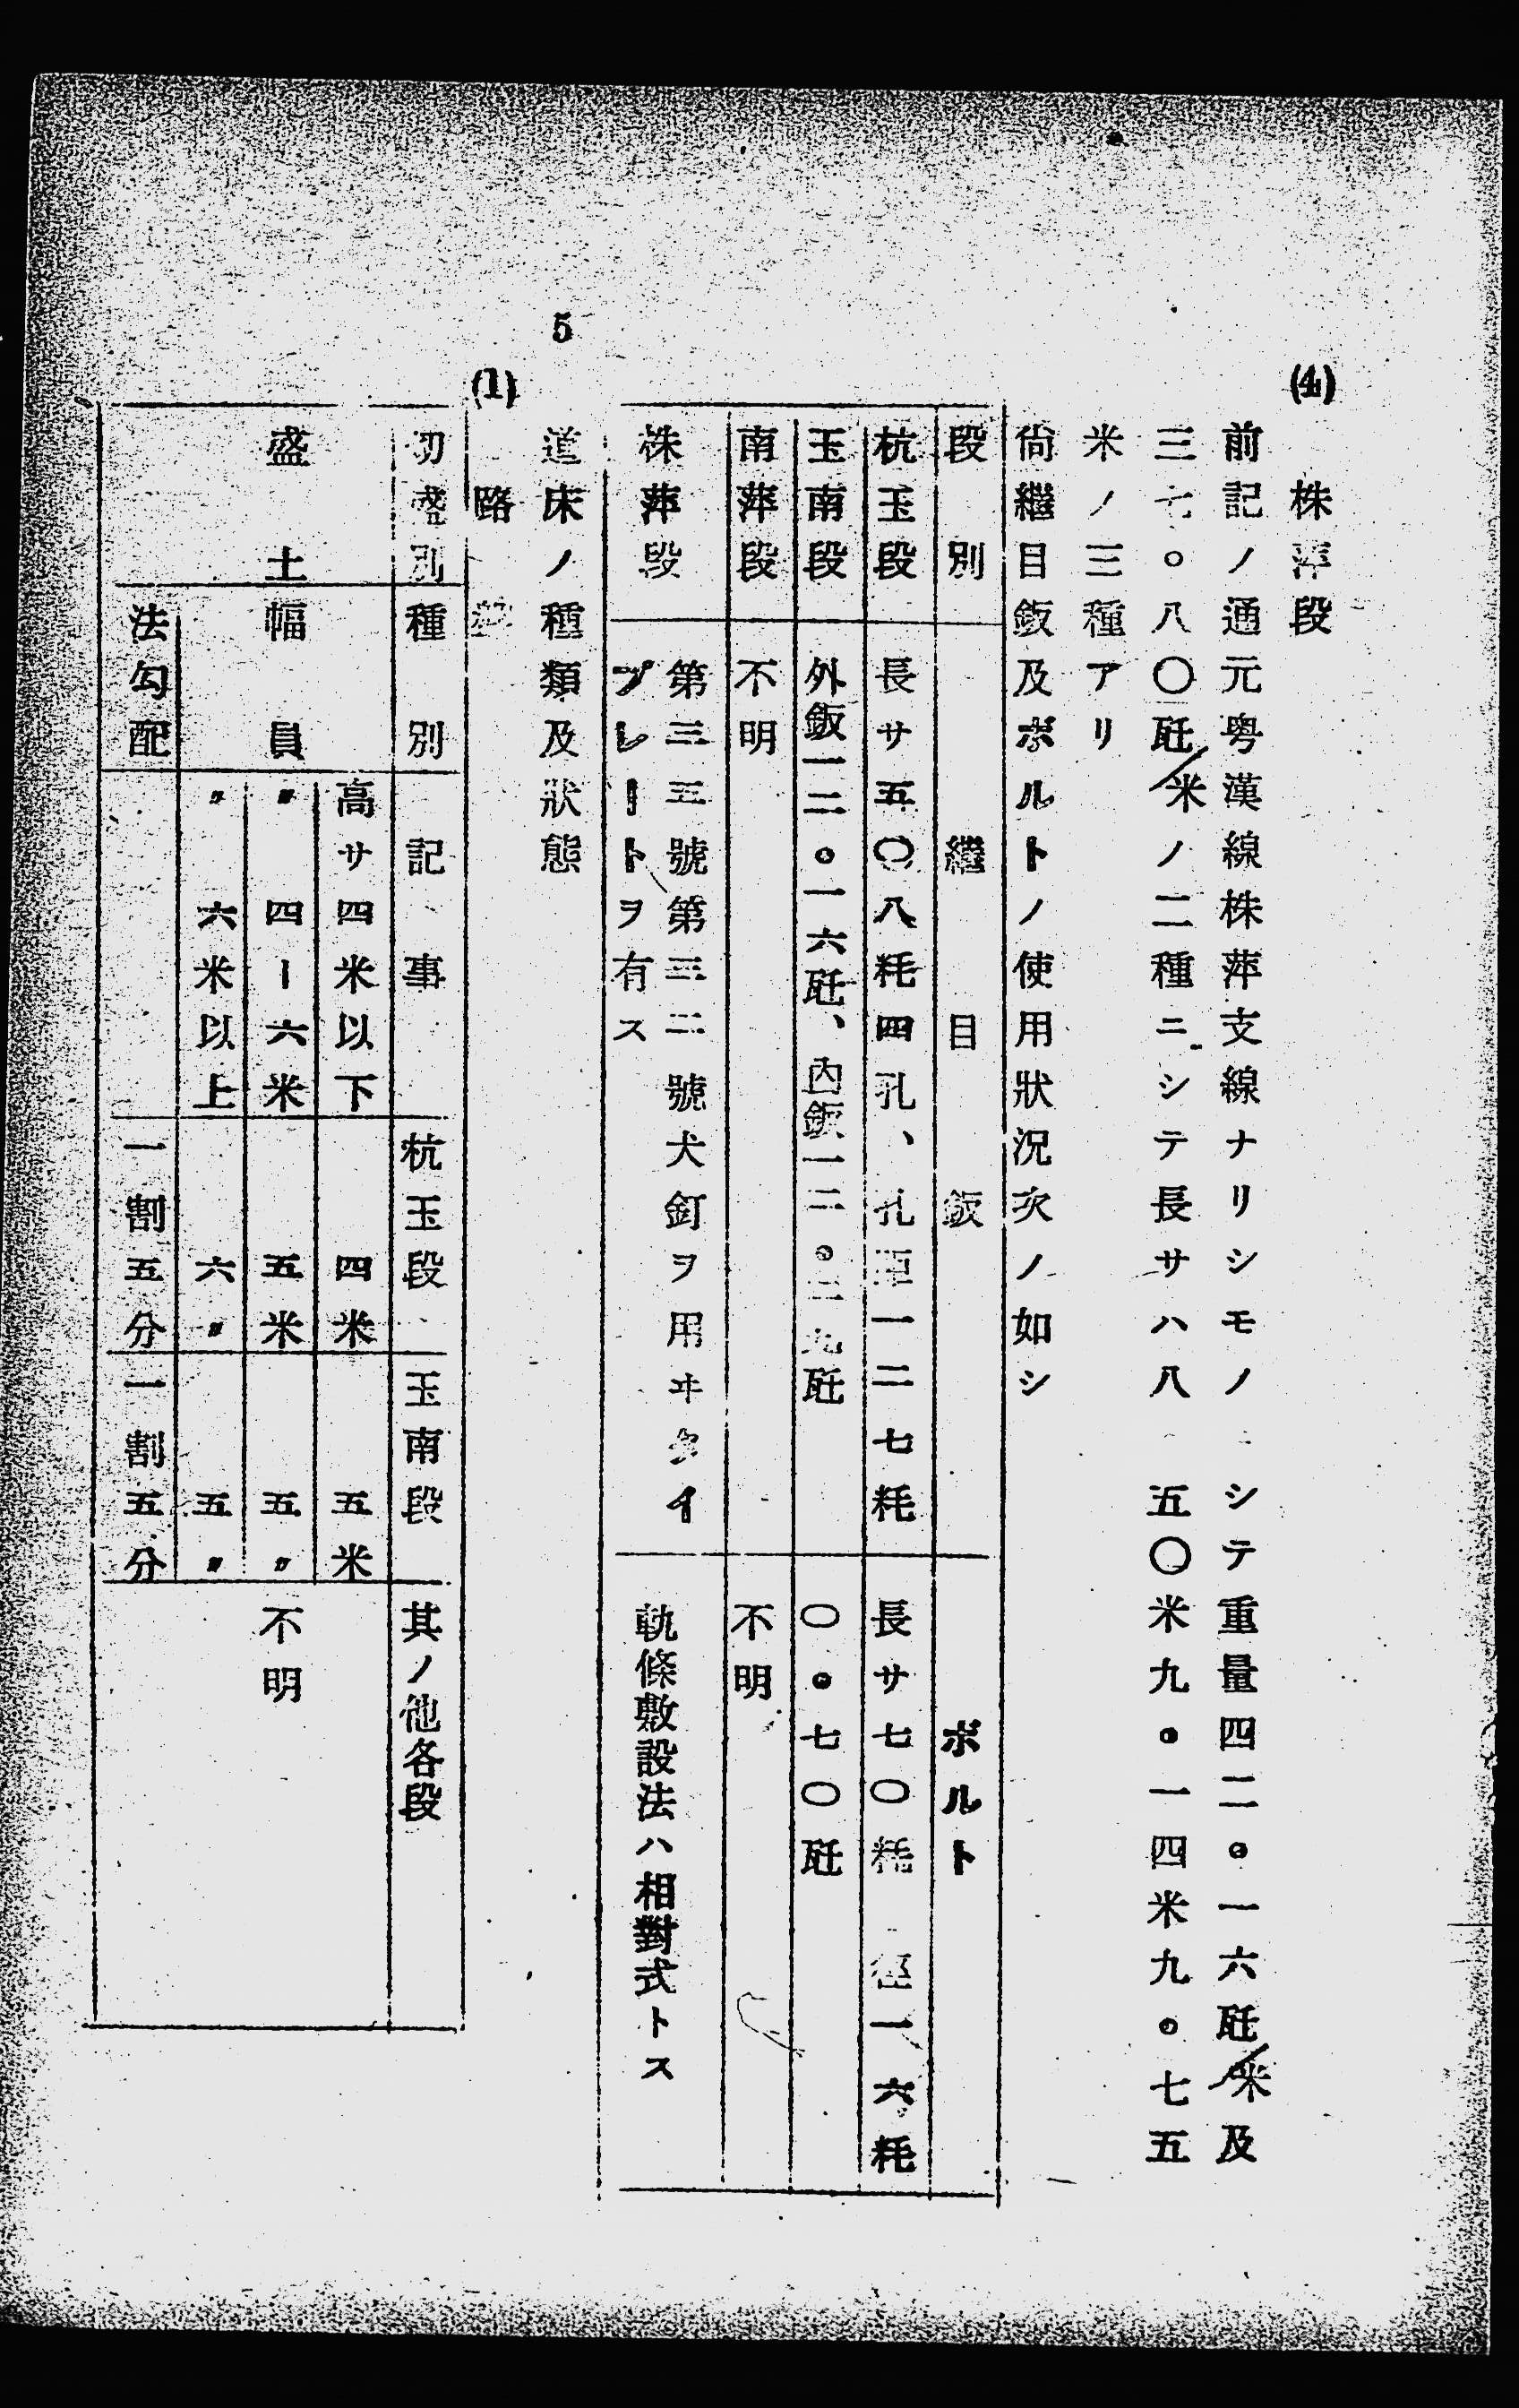 (4) 株萍段
前記ノ通元粤漢線株萍支線ナリシモノ シテ重量四二。一六瓩/米及
三七。八〇瓩/米ノ二種ニシテ長サハ八 五〇米九。一四米九。七五
米ノ三種アリ
尙繼目鈑及ボルトノ使用狀況次ノ如シ
段別 繼目鈑 ボルト
杭玉段 長サ五〇八粍四孔、孔 一二七粍 長サ七〇粍 徑一六粍
玉南段 外鈑一二。一六瓩、內鈑一二。二九瓩 〇。七〇瓩
南萍段 不明 不明
株萍段 第三三號第三二號犬釘ヲ用ヰタイ
プレートヲ有ス 軌條敷設法ハ相對式トス
5 道床ノ種類及狀態
(1) 路
切盛別 種別 記事 杭玉段 玉南段 其ノ他各段
盛土 幅員 高サ四米以下 四米 五米 不明
〃 四ー六米 五米 五〃
〃 六米以上 六〃 五〃
法勾配 一割五分 一割五分